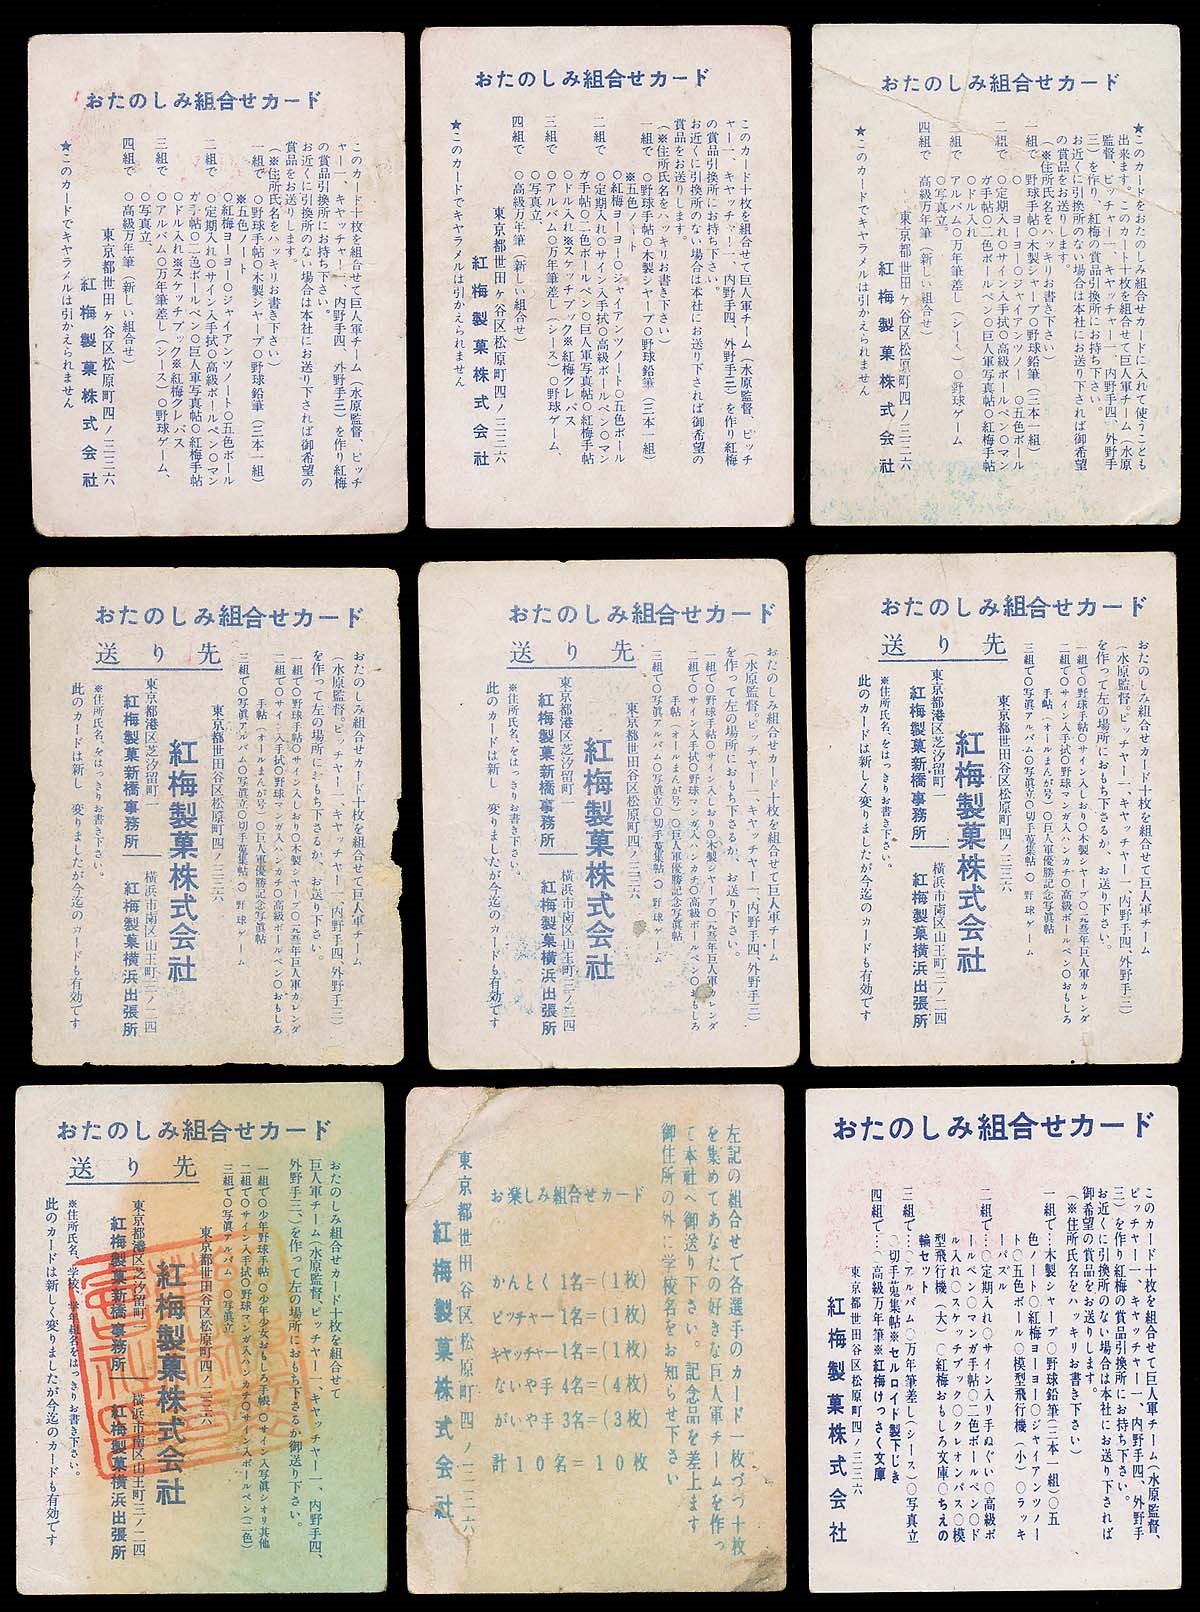 おたのしみ組合せカード
このカード十枚を組合せて巨人軍チーム（水原監督、ピッチ
ャー一、キャッチャー一、内野手四、外野手三）を作り紅梅
の賞品引換所にお持ち下さい。
お近くに引換所のない場合は本社にお送り下されば御希望の
賞品をお送りします。
（※住所氏名をハッキリお書き下さい）
一組で　〇野球手帖〇木製シャープ〇野球鉛筆（三本一組）
※五色ノート
二組で　〇紅梅ヨーヨー〇ジャイアンツノート〇五色ボール
〇定期入れ〇サイン入手拭〇高級ボールペン〇マン
ガ手帖〇二色ボールペン〇巨人軍写真帖〇紅梅手帖
三組で　〇ドル入れ※スケッチブック※紅梅クレパス
〇アルバム〇万年筆差し（シース）〇野球ゲーム、
〇写真立、
四組で　〇高級万年筆（新しい組合せ）
東京都世田ヶ谷区松原町四ノ二三六
紅梅製菓株式会社
★このカードでキャラメルは引かえられません
おたのしみ組合せカード
このカード十枚を組合せて巨人軍チーム（水原監督、ピッチ
ャー一、キャッチャー一、内野手四、外野手三）を作り紅梅
の賞品引換所にお持ち下さい。
お近くに引換所のない場合は本社にお送り下されば御希望の
賞品をお送りします。
（※住所氏名をハッキリお書き下さい）
一組で　〇野球手帖〇木製シャープ〇野球鉛筆（三本一組）
※五色ノート
〇紅梅ヨーヨー〇ジャイアンツノート〇五色ボール
二組で　〇定期入れ〇サイン入手拭〇高級ボールペン〇マン
ガ手帖〇二色ボールペン〇巨人軍写真帖〇紅梅手帖
〇ドル入れ※スケッチブック※紅梅クレパス
三組で　〇アルバム〇万年筆差し（シース）〇野球ゲーム、
〇写真立、
四組で　〇高級万年筆（新しい組合せ）
東京都世田ヶ谷区松原町四ノ二三六
紅梅製菓株式会社
★このカードでキャラメルは引かえられません
おたのしみ組合せカード
★このカードをおたのしみ組合せカードに入れて使うことも
出来ます。このカード十枚を組合せて巨人軍チーム（水原
監督、ピッチャー一、キャッチャー一、内野手四、外野手
三）を作り、紅梅の賞品引換所にお持ち下さい。
お近くに引換所のない場合は本社にお送り下されば御希望
の賞品をお送りします。
（※住所氏名をハッキリお書き下さい）
一組で　野球手帖〇木製シャープ〇野球鉛筆（三本一組）
〇　ヨーヨー〇ジャイアンツノー　〇五色ボール
二組で　〇定期入れ〇サイン入手拭〇高級ボールペン〇マン
ガ手帖〇二色ボールペン〇巨人軍写真帖〇紅梅手帖
〇ドル入れ
三組で　アルバム〇万年筆差し（シース）〇野球ゲーム
〇写真立。
四組で　高級万年筆（新しい組合せ）
東京都世田ヶ谷区松原町四ノ二三六
紅梅製菓株式会社
★このカードでキャラメルは引かえられません
おたのしみ組合せカード
おたのしみ組合せカード十枚を組合せて巨人軍チーム
（水原監督。ピッチャー一、キャッチャー一、内野手四、外野手三）
を作って左の場所におもち下さるか、お送り下さい。
一組で〇野球手帖〇サイン入しおり〇木製シャープ〇一九五三年巨人軍カレンダ
二組で〇サイン入手拭〇野球マンガ入ハンカチ〇高級ボールペン〇おもしろ
手帖（オールまんが号）〇巨人軍優勝記念写眞帖
三組で〇写眞アルバム〇写眞立〇切手蒐集帖〇野球ゲーム
送り先
東京都世田谷区松原町四ノ二三六
紅梅製菓株式会社
東京都港区芝汐留町一
紅梅製菓新橋事務所
横浜市南区山王町三ノ二四
紅梅製菓横浜出張所
※住所氏名、をはっきりお書き下さい。
此のカードは新し　変りましたが今迄のカードも有効です
おたのしみ組合せカード
おたのしみ組合せカード十枚を組合せて巨人軍チーム
（水原監督。ピッチャー一　キャッチャー一、内野手四、外野手三）
を作って左の場所におもち下さるか、お送り下さい。
一組で〇野球手帖〇サイン入しおり〇木製シャープ〇一九五三年巨人軍カレンダ
二組で〇サイン入手拭〇野球マンガ入ハンカチ〇高級ボールペン〇おもしろ
手帖（オールまんが号）〇巨人軍優勝記念写眞帖
三組で〇写眞アルバム〇写眞立〇切手蒐集帖〇野球ゲーム
送り先
東京都世田谷区松原町四ノ二三六
紅梅製菓株式会社
東京都港区芝汐留町一
紅梅製菓新橋事務所
横浜市南区山王町三ノ二四
紅梅製菓横浜出張所
※住所氏名、をはっきりお書き下さい。
此のカードは新しく変りましたが今迄のカードも有効です
おたのしみ組合せカード
おたのしみ組合せカード十枚を組合せて巨人軍チーム
（水原監督。ピッチャー一、キャッチャー一、内野手四、外野手三）
を作って左の場所におもち下さるか、お送り下さい。
一組で〇野球手帖〇サイン入しおり〇木製シャープ〇一九五三年巨人軍カレンダ
二組で〇サイン入手拭〇野球マンガ入ハンカチ〇高級ボールペン〇おもしろ
手帖（オールまんが号）〇巨人軍優勝記念写眞帖
三組で〇写眞アルバム〇写眞立〇切手蒐集帖〇野球ゲーム
送り先
東京都世田谷区松原町四ノ二三六
紅梅製菓株式会社
東京都港区芝汐留町一
紅梅製菓新橋事務所
横浜市南区山王町三ノ二四
紅梅製菓横浜出張所
※住所氏名、をはっきりお書き下さい。
此のカードは新しく変りましたが今迄のカードも有効です
おたのしみ組合せカード
おたのしみ組合せカード十枚を組合せて
巨人軍チーム（水原監督、ピッチャー一、キャッチャー一、内野手四、
外野手三、）を作って左の場所におもち下さるか御送り下さい。
一組で〇少年野球手帖〇少年少女おもしろ手帳〇サイン入写眞シオリ其他
二組で〇サイン入手拭〇野球マンガ入ハンカチ〇サイン入ボールペン（二色）
三組で〇写眞アルバム〇写眞立
送り先
東京都世田谷区松原町四ノ二三六
紅梅製菓株式会社
東京都港区芝汐留町一
紅梅製菓新橋事務所
横浜市南区山王町三ノ二四
紅梅製菓横浜出張所
※住所氏名、学校、学年組名をはっきりお書き下さい。
此のカードは新しく変りましたが今迄のカードも有効です
左記の組合せで各選手のカード一枚づつ十枚
を集めてあなたの好きな巨人軍チームを作っ
て本社へ御送り下さい。記念品を差上ます
御住所の外に学校名をお知らせ下さい
お楽しみ組合せカード
かんとく 1名＝（1枚）
ピッチャー 1名＝（1枚）
キャッチャー 1名＝（1枚）
ないや手 4名＝（4枚）
がいや手 3名＝（3枚）
計 10名＝10枚
東京都世田谷区松原町四ノ二三六
紅梅製菓株式会社
おたのしみ組合せカード
このカード十枚を組合せて巨人軍チーム（水原監督、
ピッチャー一、キャッチャー一、内野手四、外野手
三）を作り紅梅の賞品引換所にお持ち下さい。
お近くに引換所のない場合は本社にお送り下されば
御希望の賞品をお送りします。
（※住所氏名をハッキリお書き下さい）
一組で…木製シャープ〇野球鉛筆（三本一組）〇五
色ノート〇紅梅ヨーヨー〇ジャイアンツノー
ト〇五色ボール〇模型飛行機（小）〇ラッキ
ーパズル
二組で…〇定期入れ〇サイン入り手ぬぐい〇高級ボ
ールペン〇マンガ手帖〇二色ボールペン〇ド
ル入れ〇スケッチブック〇クレオンパス〇模
型飛行機（大）〇紅梅おもしろ文庫〇ちえの
輪セット
三組で…〇アルバム〇万年筆差し（シース）〇写真立
〇切手蒐集帖※セルロイド製下じき
四組で…〇高級万年筆※紅梅けっさく文庫
東京都世田谷区松原町四ノ二三六
紅梅製菓株式会社